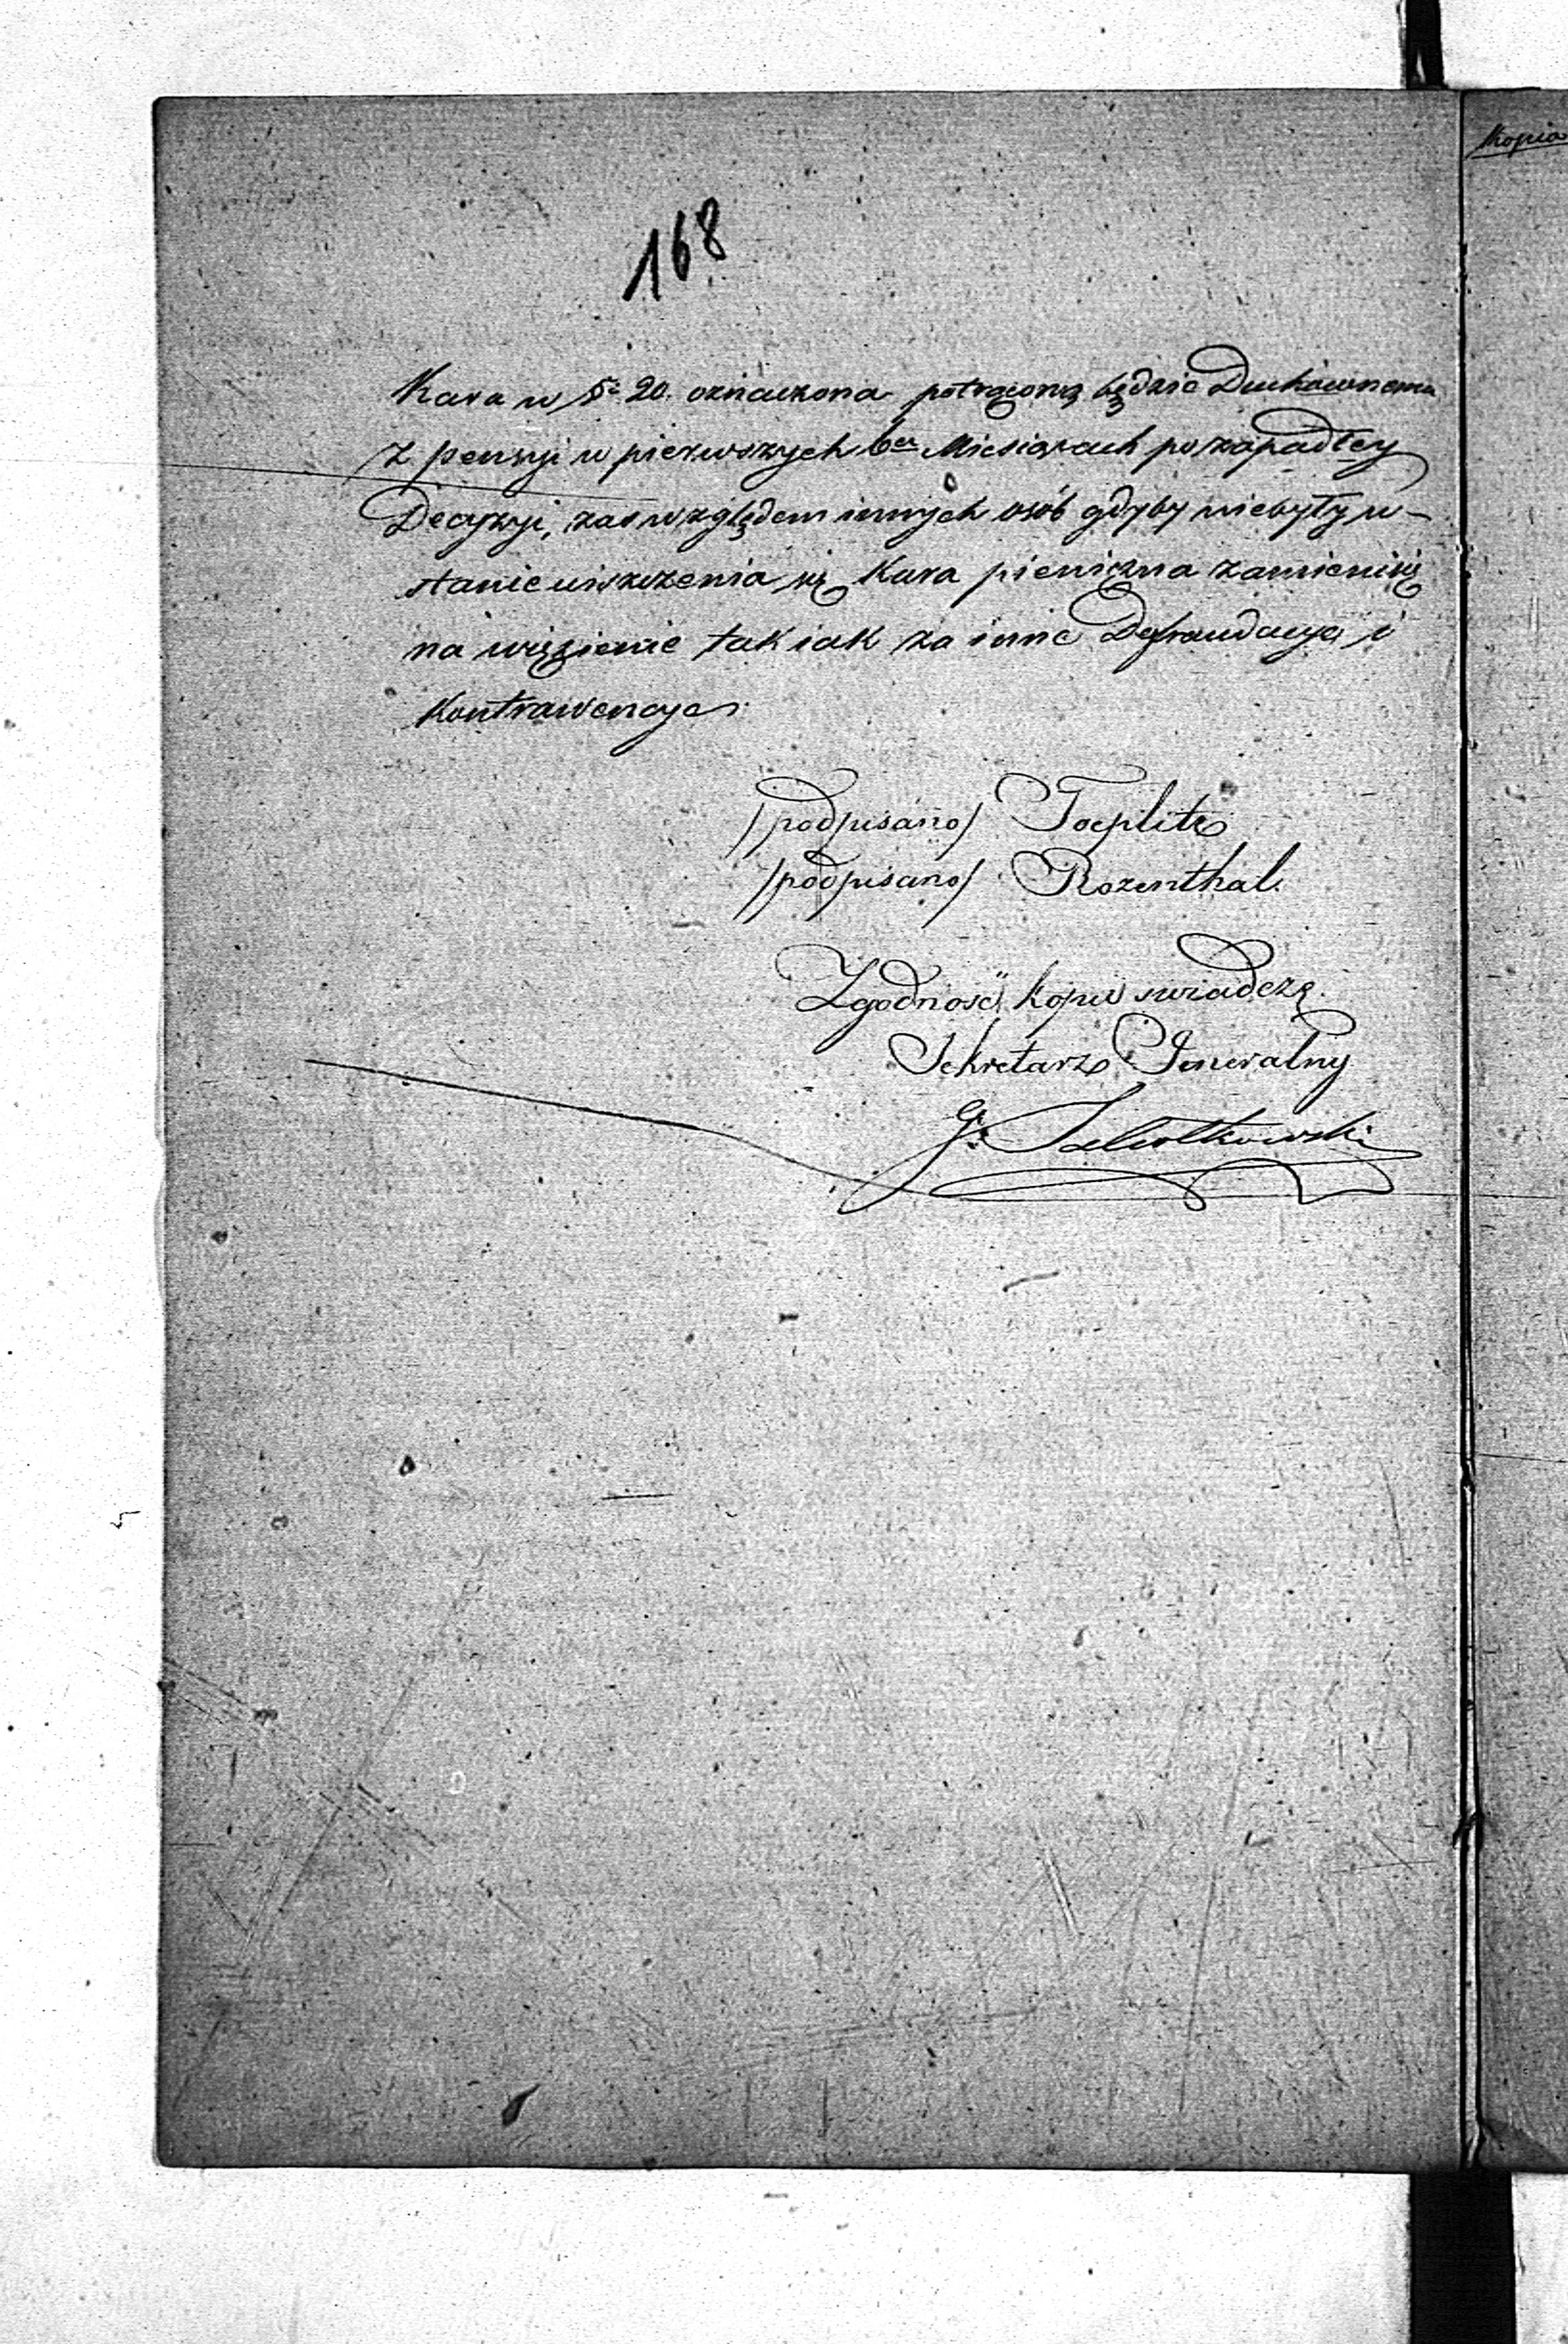 168
Kopia
Kara w §e 20. oznaczona potrąconą będzie Duchownemu
z pensyi w pierwszych 6ciu Miesiącach po zapadłey
Decyzyi, zas względem innych osób gdyby niebyły w –
stanie uiszczenia się Kara pieniężna zamieni się
na więzienie tak iak za inne Defraudacye i
Kontrawencye.
/podpisano/ Toeplitz
/podpisano/ Rozenthal.
Zgodność kopii swiadczę.
Sekretarz Jeneralny
G: